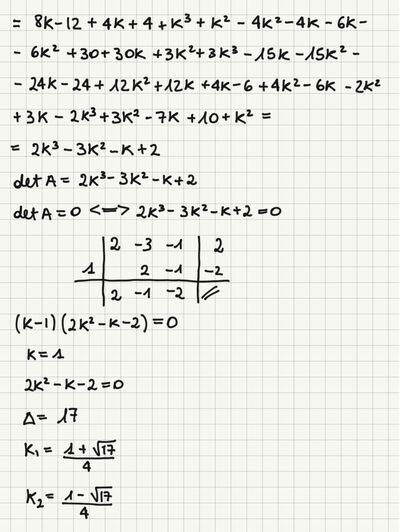 = 8K-12 + 4K + 4 + K³ + K² - 4K² - 4K - 6K -
- 6K² + 30 + 30K + 3K² + 3K³ - 15K - 15K² -
- 24K - 24 + 12K² + 12K + 4K - 6 + 4K² - 6K - 2K²
+ 3K - 2K³ + 3K² - 7K + 10 + K² =
= 2K³ - 3K² - K + 2
det A = 2K³ - 3K² - K + 2
det A = 0 <=> 2K³ - 3K² - K + 2 = 0
| 2 -3 -1 | 2
1 | 2 -1 | -2
| 2 -1 -2 | //
(K-1)(2K² - K - 2) = 0
K = 1
2K² - K - 2 = 0
Δ = 17
K₁ = (1 + √17)/4
K₂ = (1 - √17)/4